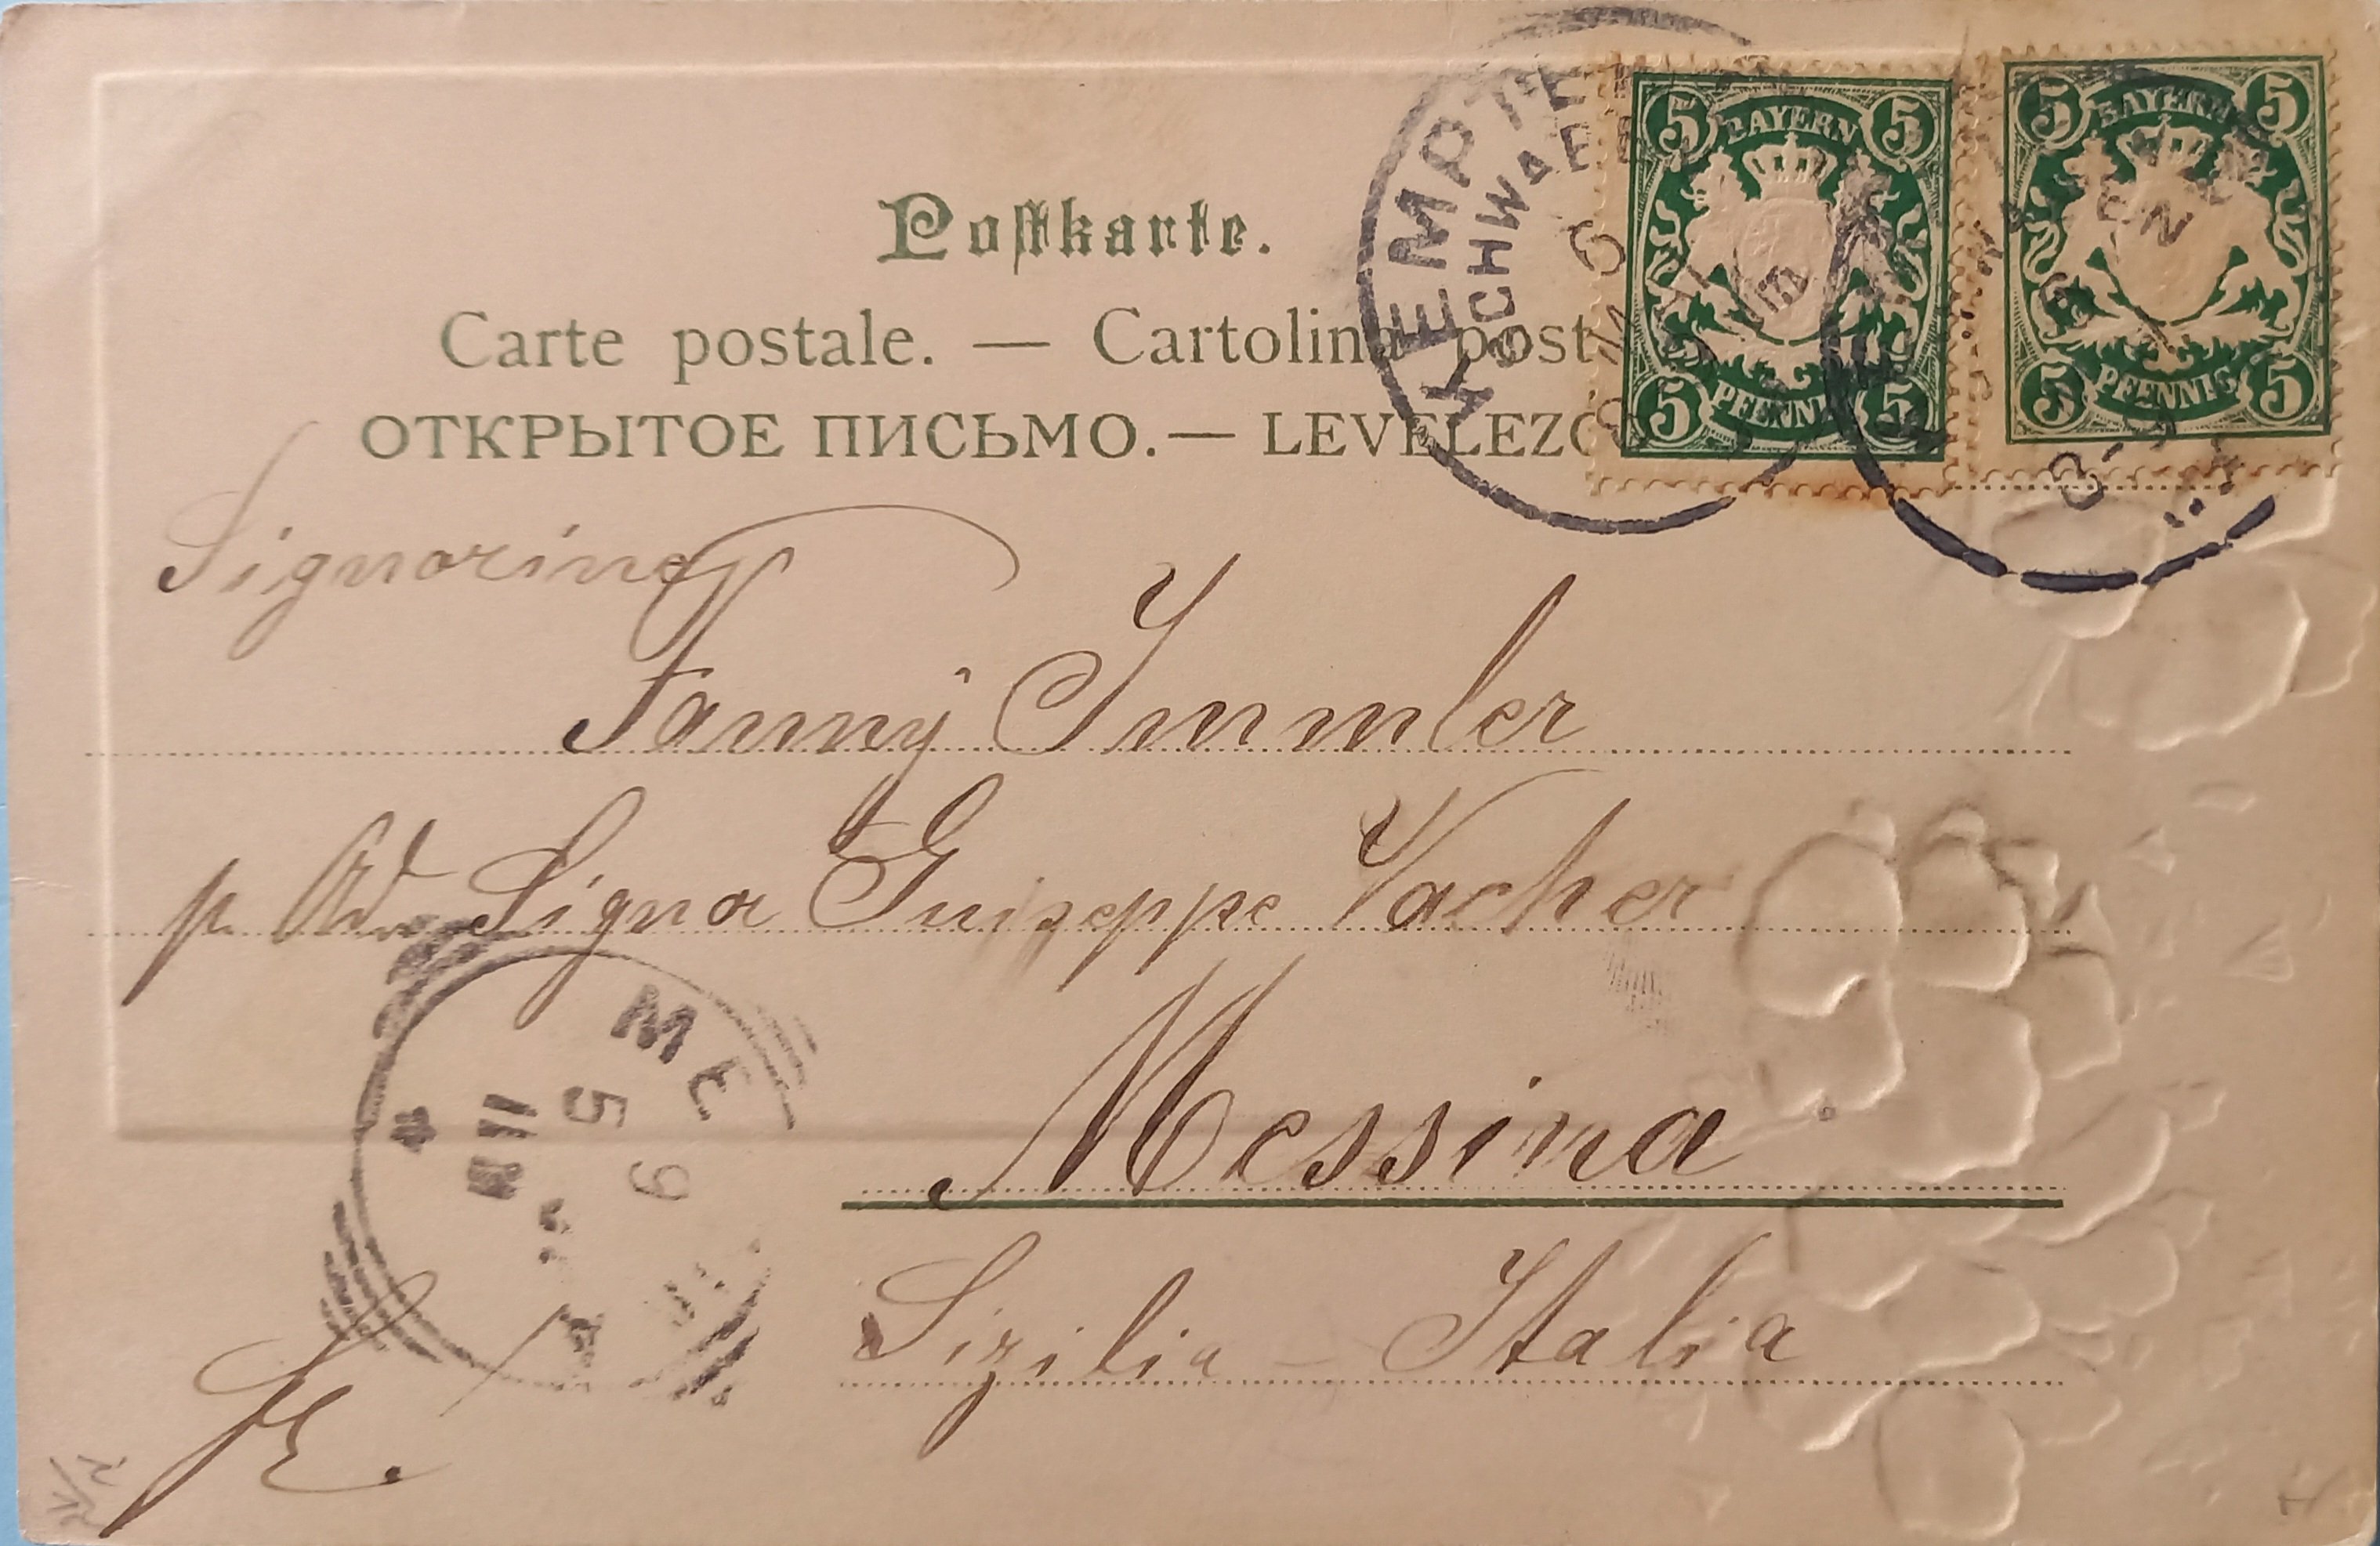 Postkarte.
Carte postale. — Cartolina post
ОТКРЫТОЕ ПИСЬМО. — LEVELEZŐ
KEMPTE
SCHWAB
5 BAYERN 5
5 PFENNIG 5
5 BAYERN 5
5 PFENNIG 5
Signorina
Fanny Immler
p. Ad. Signa Guiseppe Vacher
Messina
Sizilia – Italia
ME
5 9
11